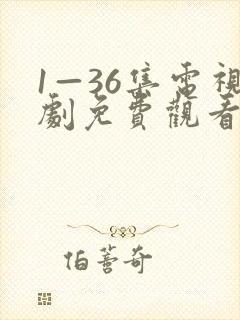 1—36集電視
劇免費觀看
伯蒼奇